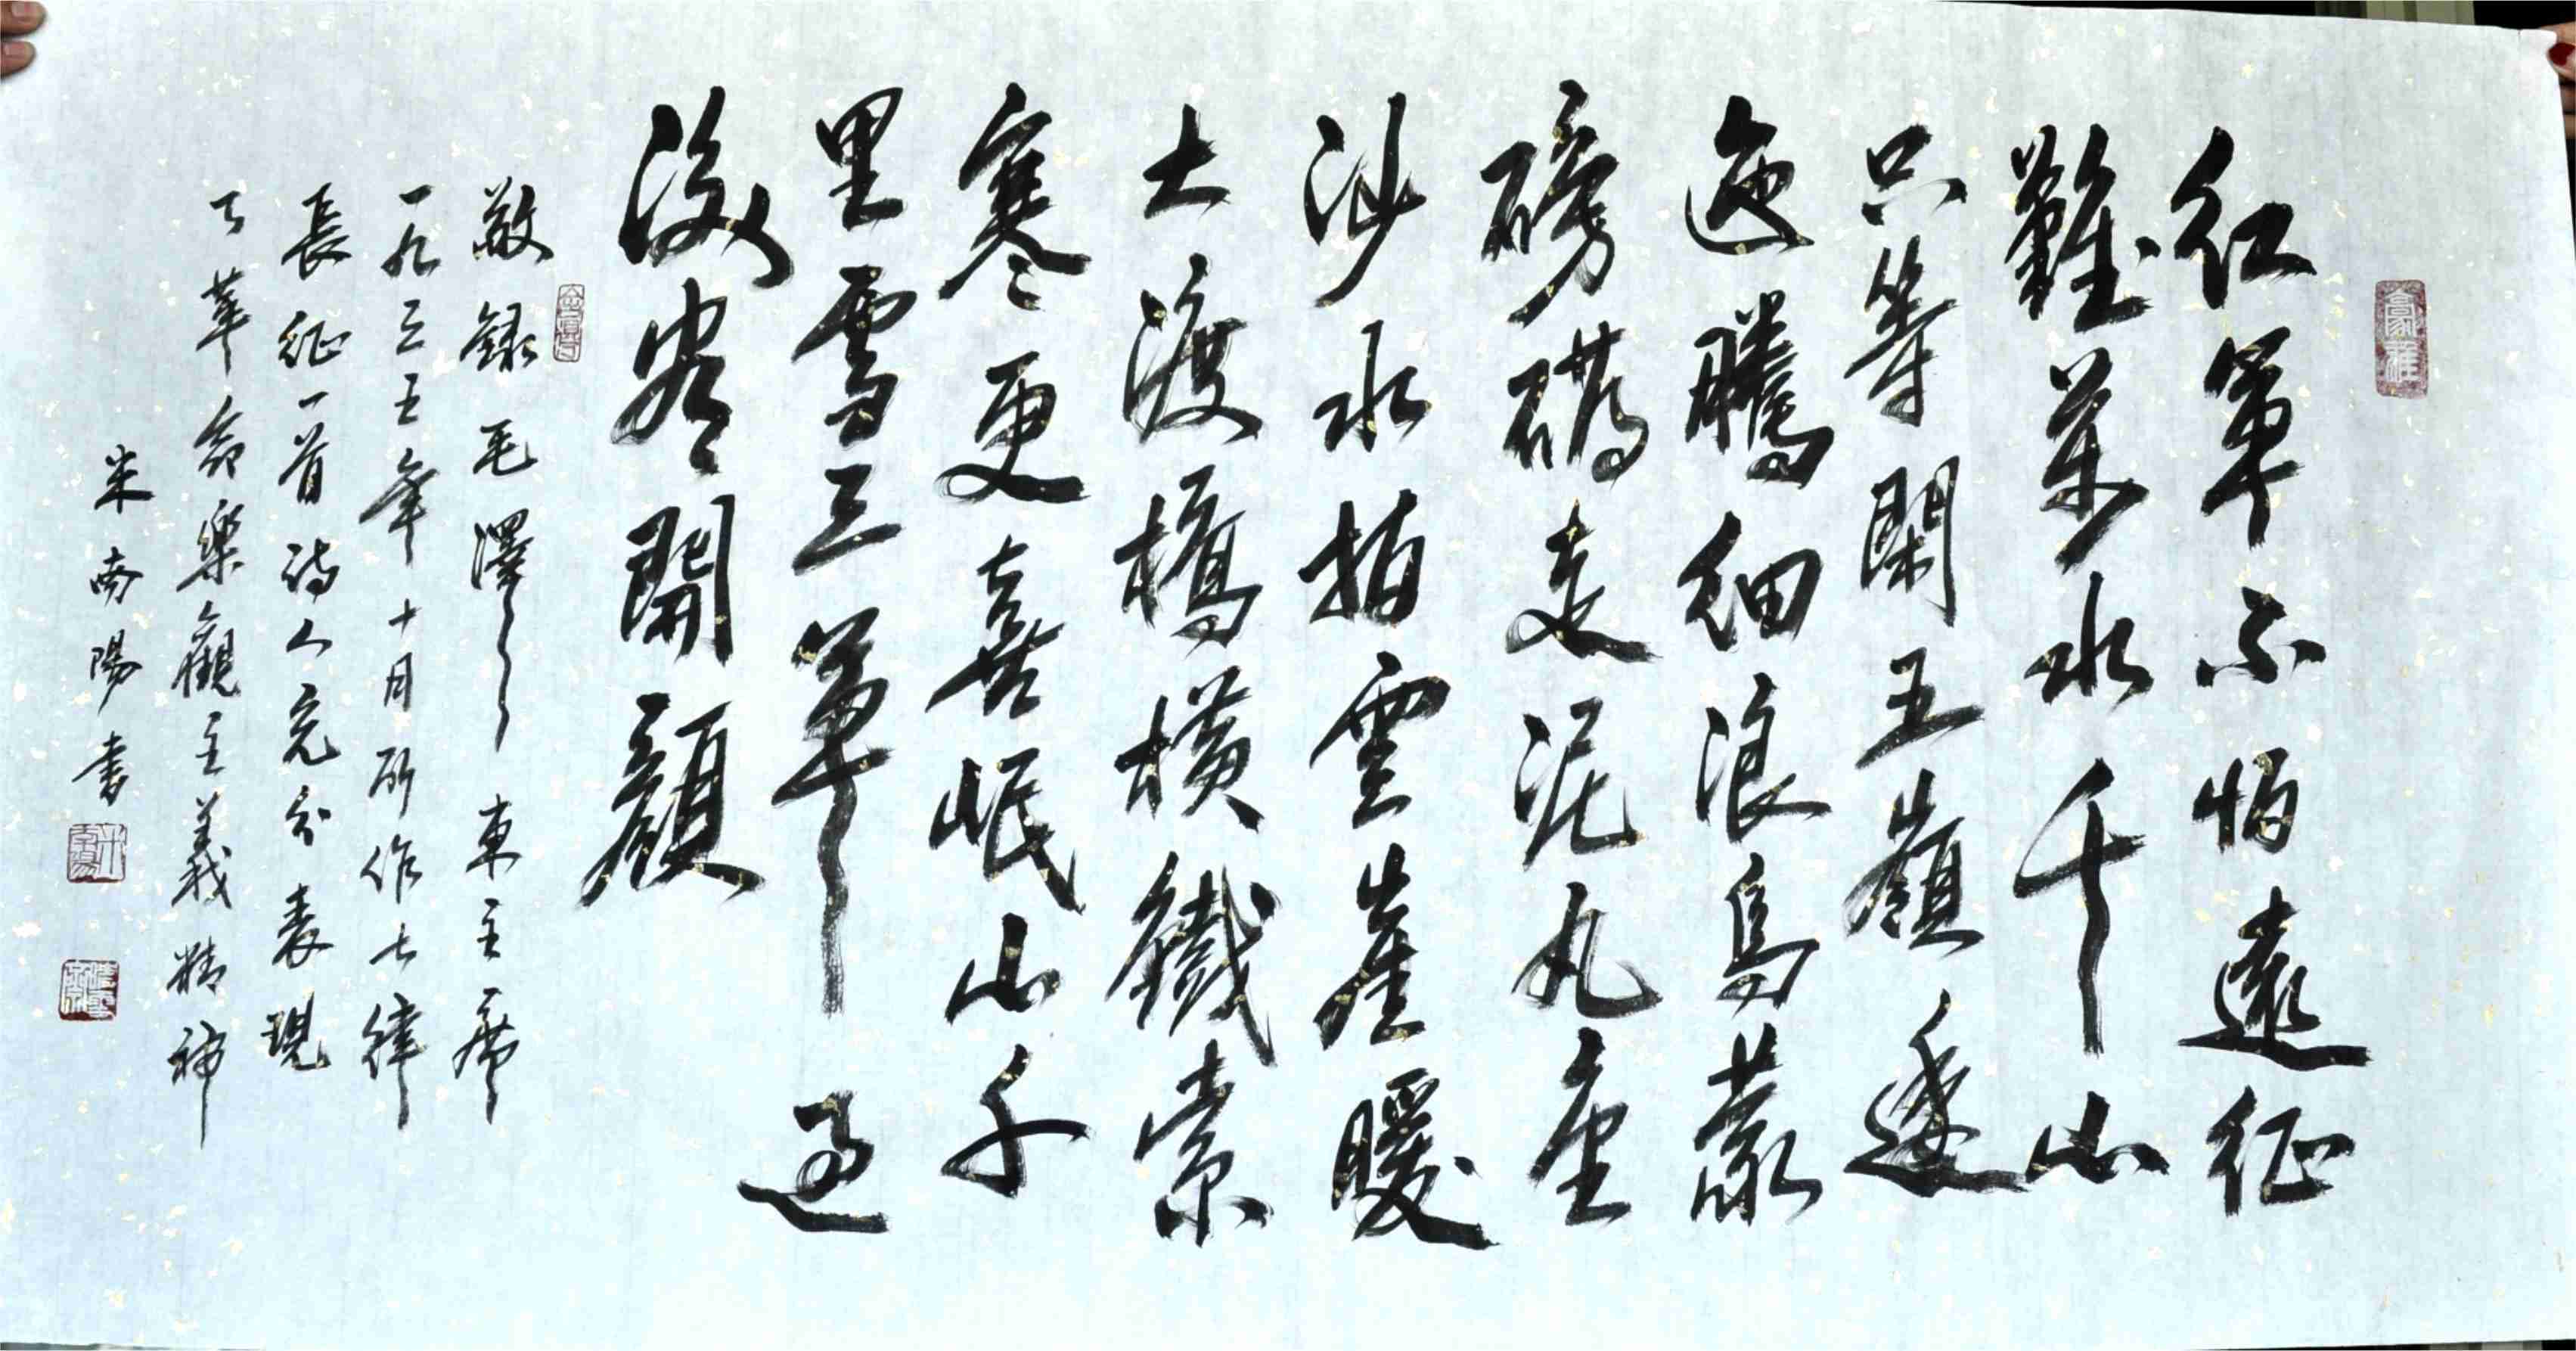 紅軍不怕遠征
難萬水千山
只等閑五嶺逶
迤騰細浪烏蒙
磅礴走泥丸金
沙水拍雲崖暖
大渡橋橫鐵索
寒更喜岷山千
里雪三軍過
後盡開顏
敬錄毛澤東主席
一九三五年十月所作七律
長征一首詩人充分表現
了革命樂觀主義精神
米南陽書